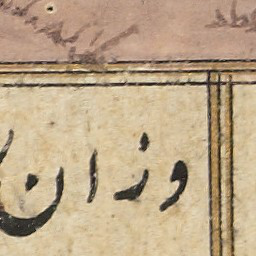 وزان